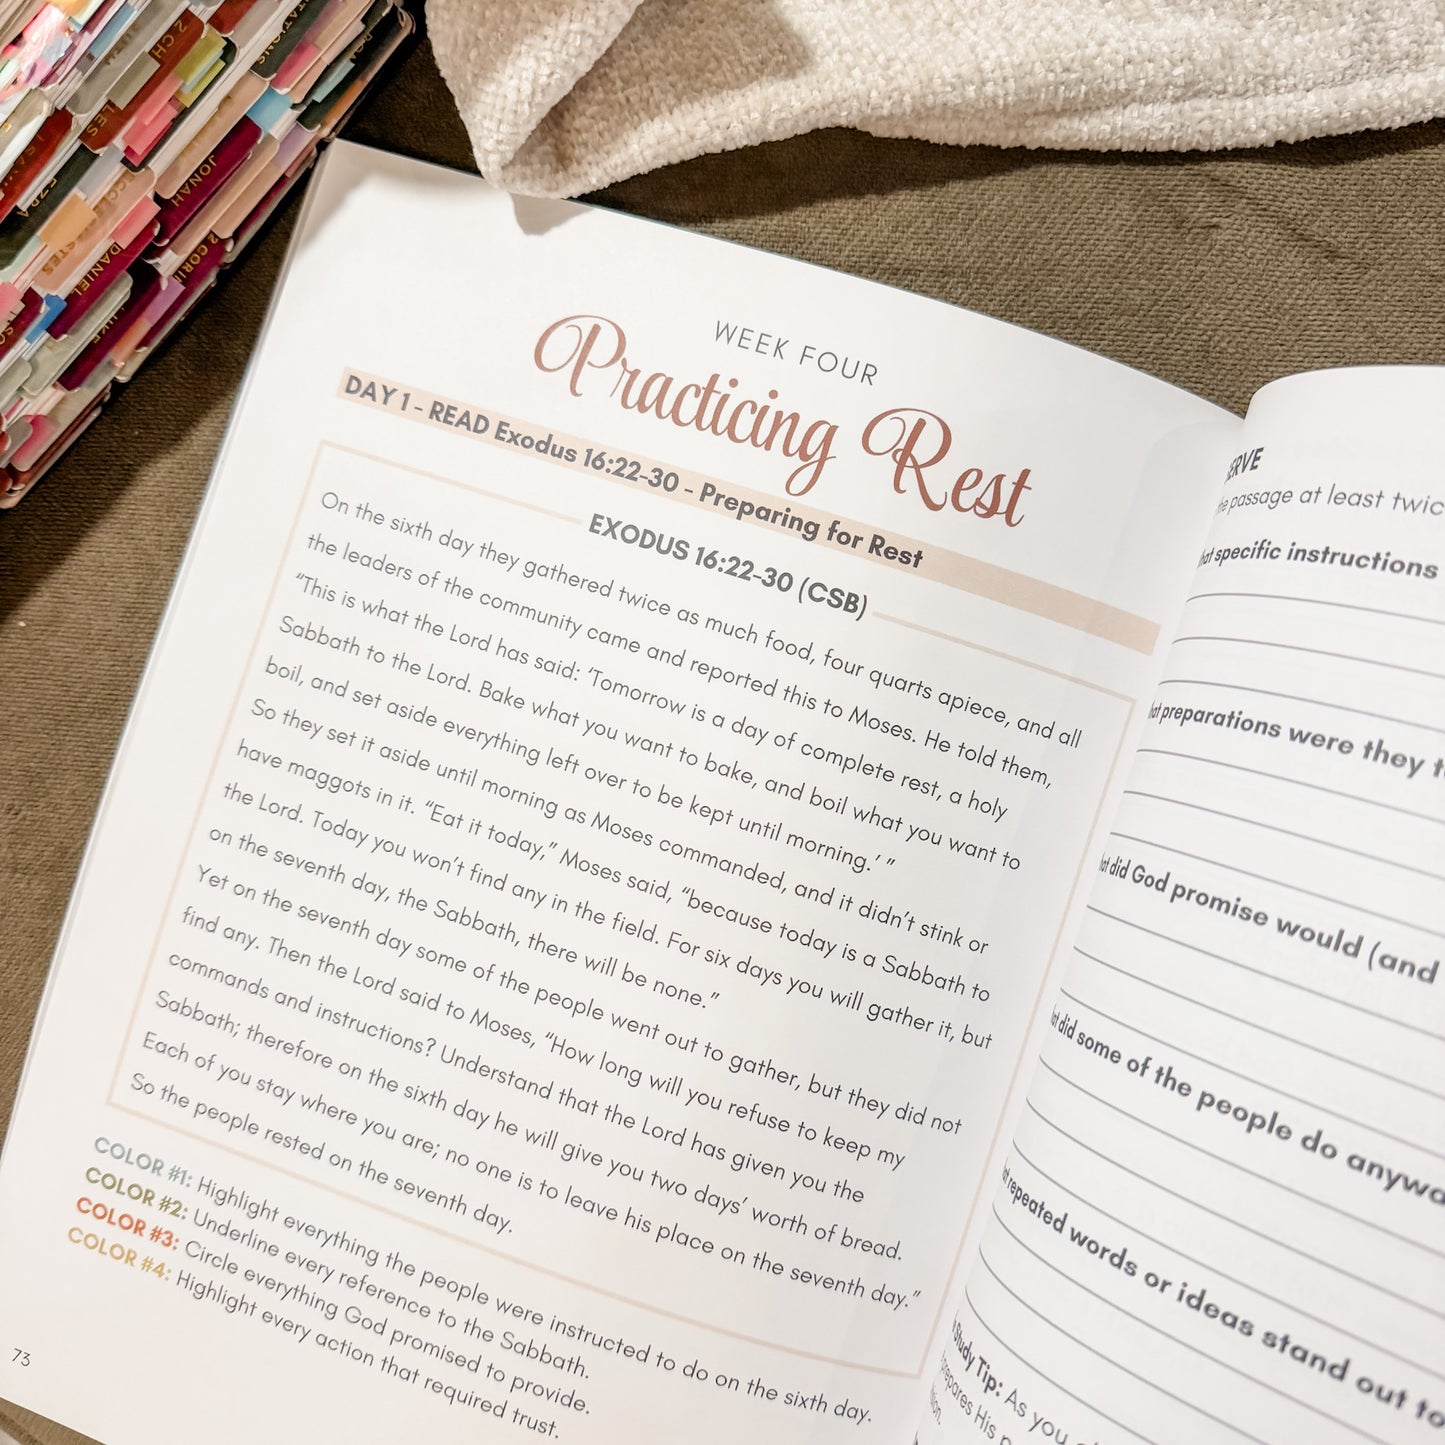 2 CH
JONAH
EZRA
DANIEL
WEEK FOUR
Practicing Rest
DAY 1 - READ Exodus 16:22-30 - Preparing for Rest
EXODUS 16:22-30 (CSB)
On the sixth day they gathered twice as much food, four quarts apiece, and all
the leaders of the community came and reported this to Moses. He told them,
“This is what the Lord has said: ‘Tomorrow is a day of complete rest, a holy
Sabbath to the Lord. Bake what you want to bake, and boil what you want to
boil, and set aside everything left over to be kept until morning.’ ”
So they set it aside until morning as Moses commanded, and it didn’t stink or
have maggots in it. “Eat it today,” Moses said, “because today is a Sabbath to
the Lord. Today you won’t find any in the field. For six days you will gather it, but
on the seventh day, the Sabbath, there will be none.”
Yet on the seventh day some of the people went out to gather, but they did not
find any. Then the Lord said to Moses, “How long will you refuse to keep my
commands and instructions? Understand that the Lord has given you the
Sabbath; therefore on the sixth day he will give you two days’ worth of bread.
Each of you stay where you are; no one is to leave his place on the seventh day.”
So the people rested on the seventh day.
COLOR #1: Highlight everything the people were instructed to do on the sixth day.
COLOR #2: Underline every reference to the Sabbath.
COLOR #3: Circle everything God promised to provide.
COLOR #4: Highlight every action that required trust.
73
the passage at least twic
specific instructions
preparations were they t
did God promise would (and
did some of the people do anywa
repeated words or ideas stand out to
Study Tip: As you
prepares His